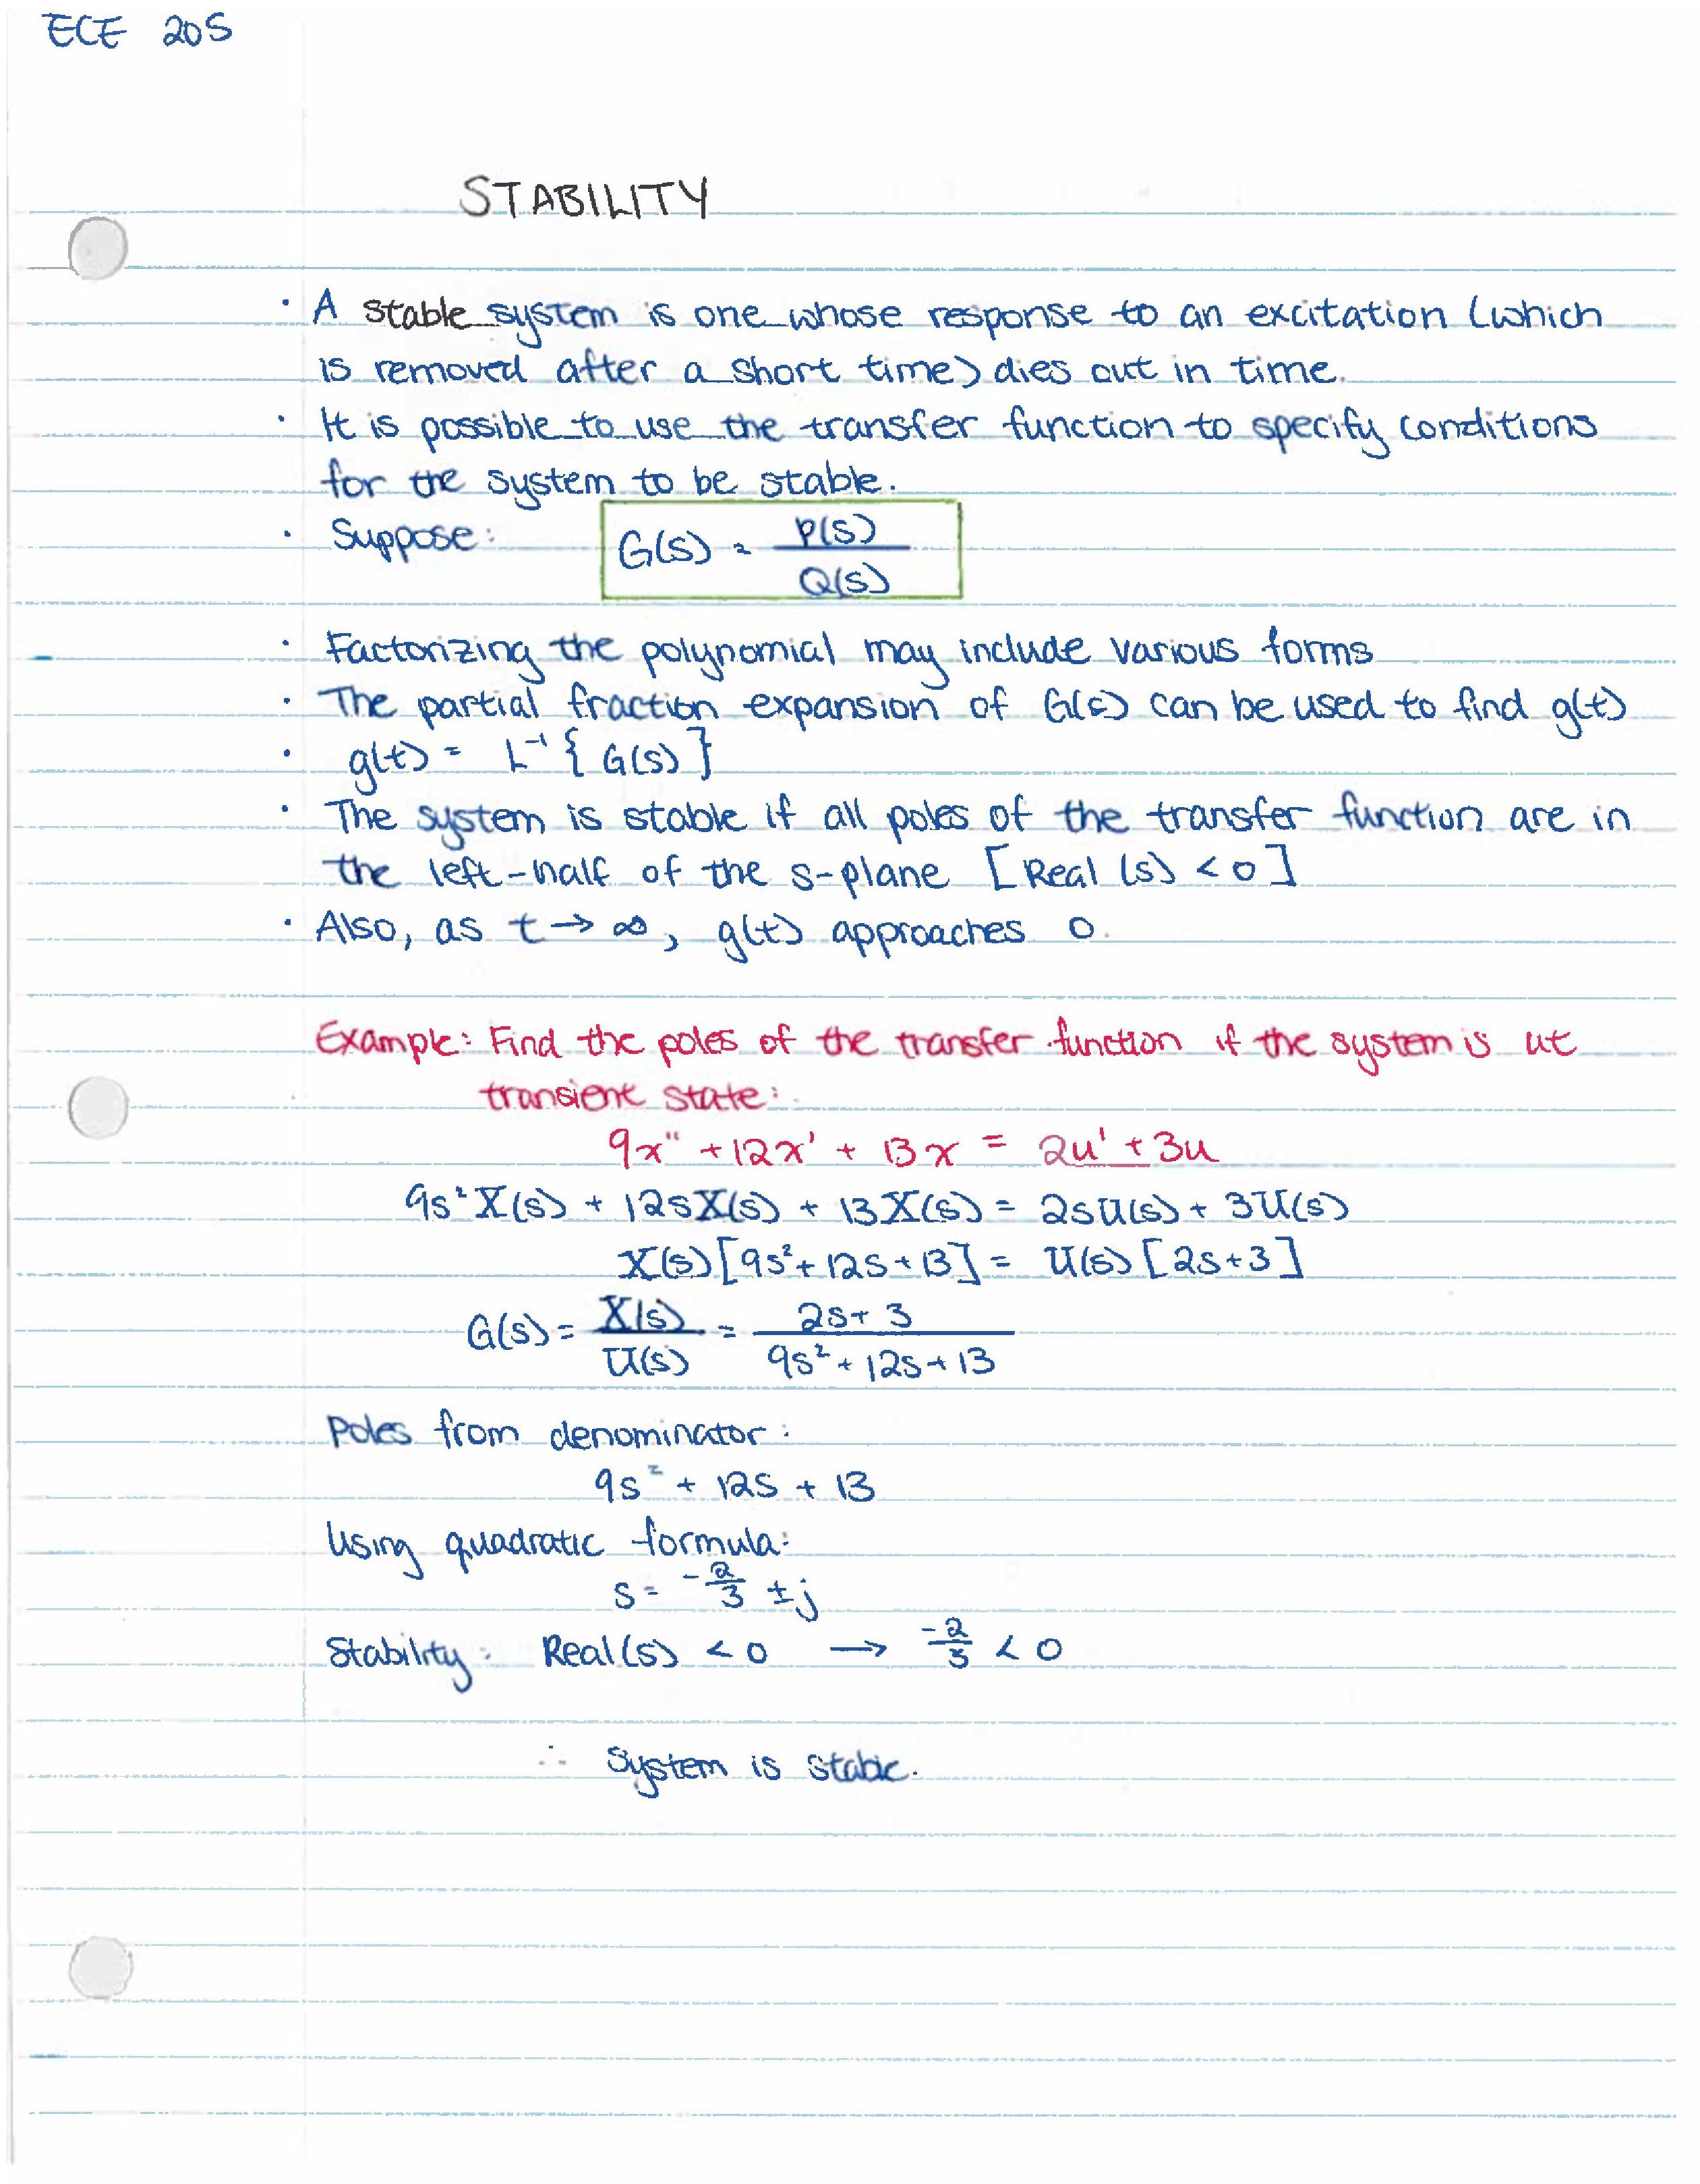 ECE 205
STABILITY
· A stable system is one whose response to an excitation (which
is removed after a short time) dies out in time.
· It is possible to use the transfer function to specify conditions
for the system to be stable.
· Suppose: G(s) = P(s) / Q(s)
· Factorizing the polynomial may include various forms
· The partial fraction expansion of G(s) can be used to find g(t)
· g(t) = L⁻¹ { G(s) }
· The system is stable if all poles of the transfer function are in
the left-half of the s-plane [Real (s) < 0]
· Also, as t → ∞, g(t) approaches 0.
Example: Find the poles of the transfer function if the system is at
transient state:
9x'' + 12x' + 13x = 2u' + 3u
9s²X(s) + 12sX(s) + 13X(s) = 2sU(s) + 3U(s)
X(s)[9s² + 12s + 13] = U(s)[2s+3]
G(s) = X(s) / U(s) = 2s + 3 / 9s² + 12s + 13
Poles from denominator:
9s² + 12s + 13
Using quadratic formula:
s = -2/3 ± j
Stability: Real(s) < 0 → -2/3 < 0
∴ System is stable.